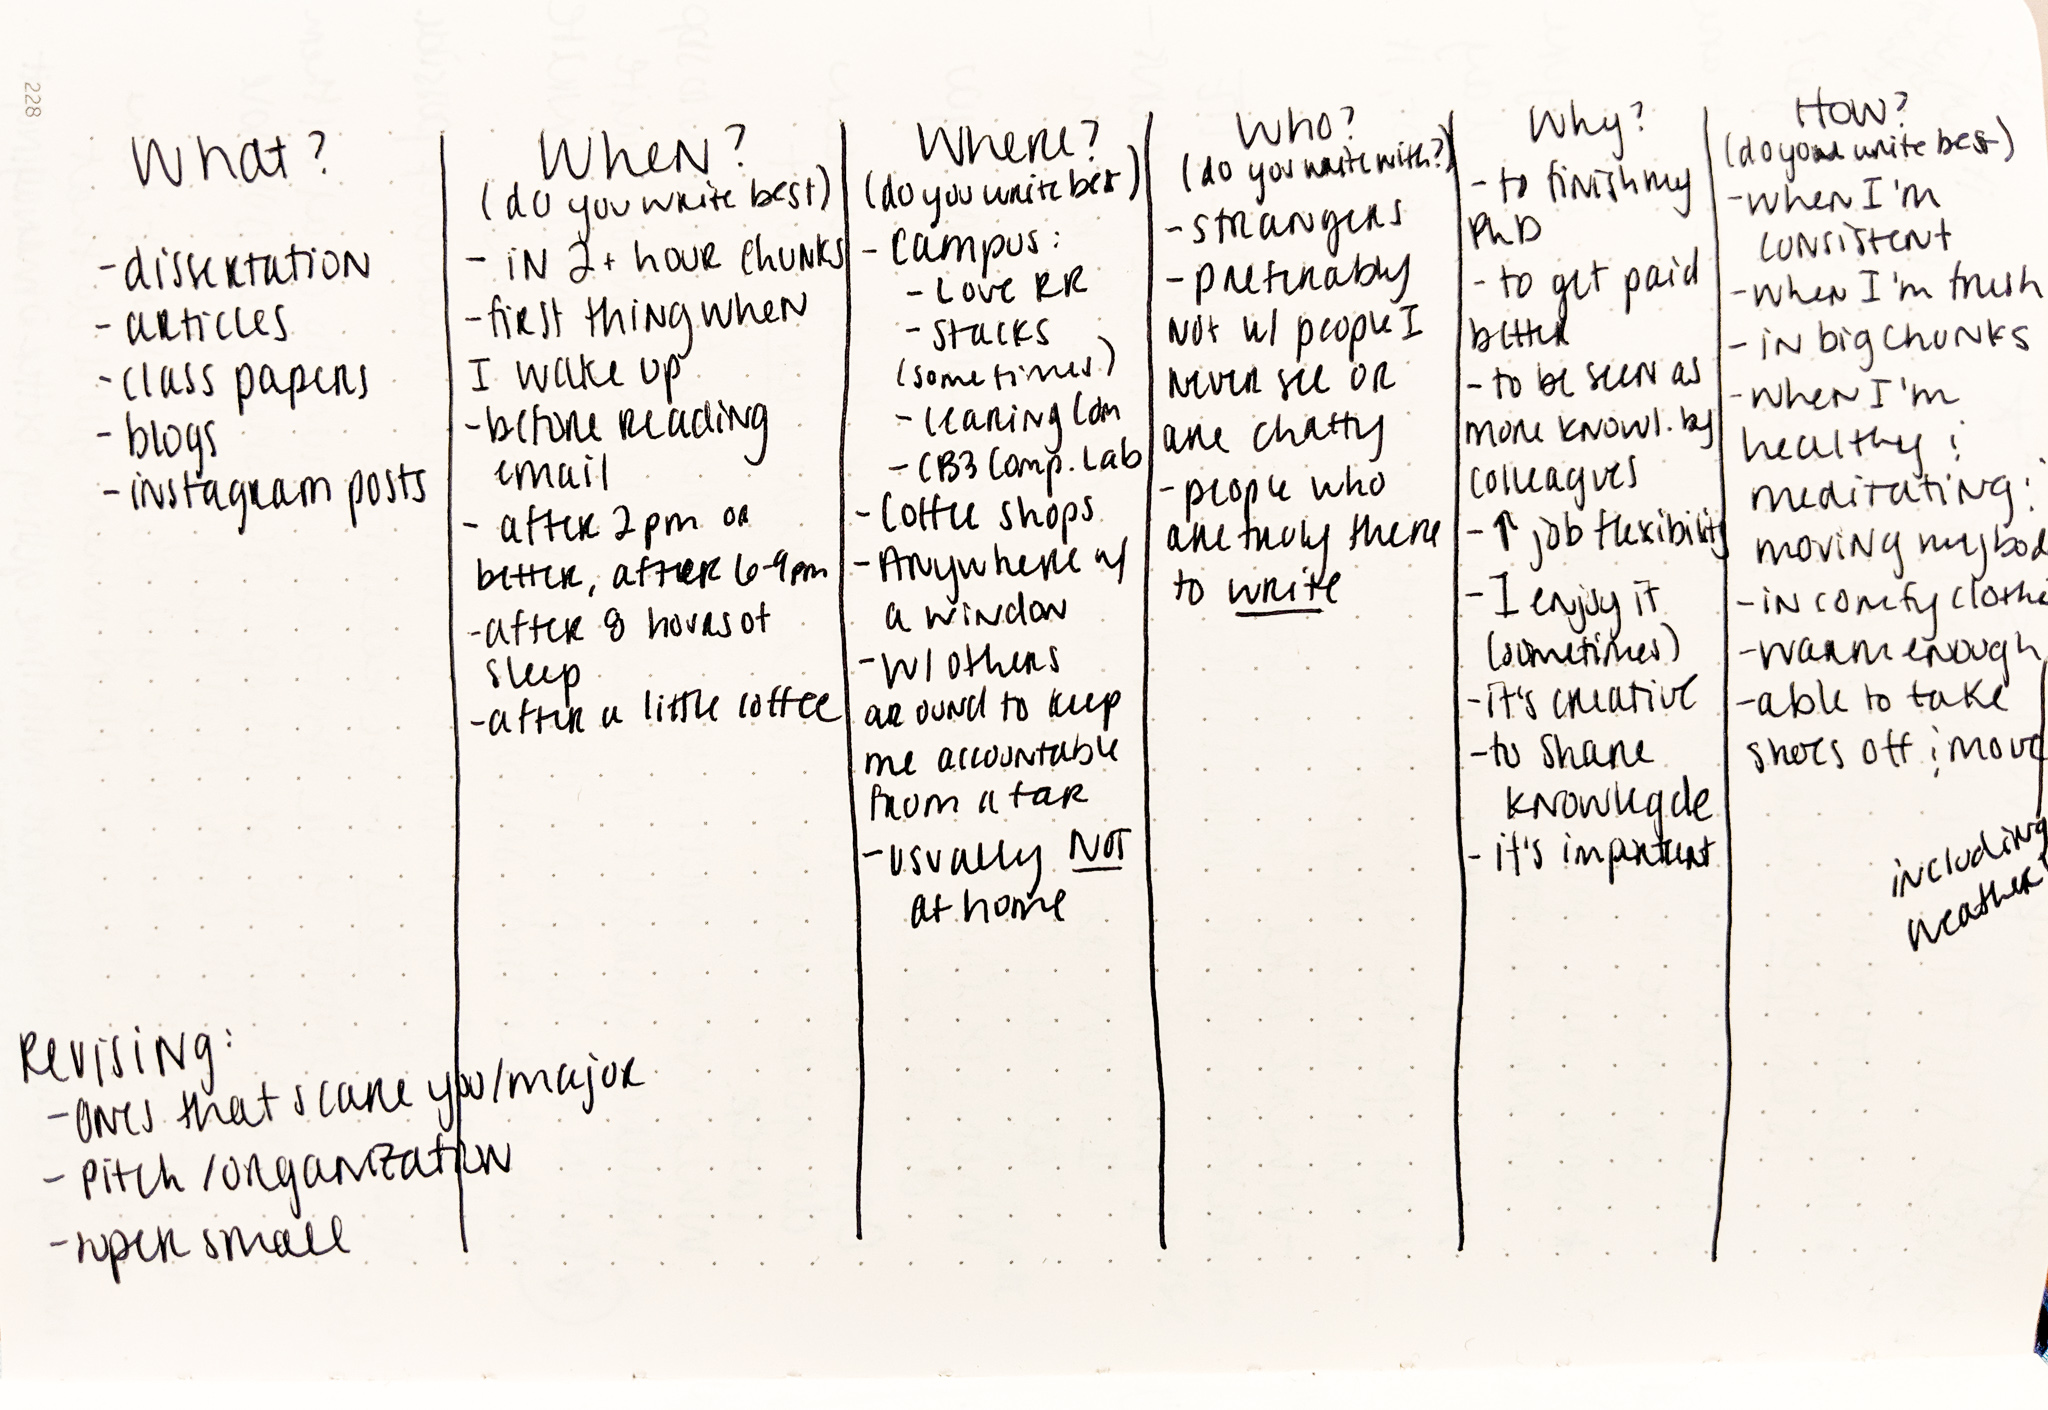 228
What?
- dissertation
- articles
- class papers
- blogs
- instagram posts
When?
(do you write best)
- in 2+ hour chunks
- first thing when
I wake up
- before reading
email
- after 2pm or
better, after 6-9pm
- after 8 hours of
sleep
- after a little coffee
Where?
(do you write best)
- Campus:
- Love RR
- Stacks
(sometimes)
- Learning Com
- CB3 Comp. Lab
- Coffee shops
- Anywhere w/
a window
- w/ others
around to keep
me accountable
from afar
- usually NOT
at home
Who?
(do you write with?)
- strangers
- preferably
not w/ people I
never see or
are chatty
- people who
are truly there
to write
Why?
- to finish my
PhD
- to get paid
better
- to be seen as
more knowl. by
colleagues
- ↑ job flexibility
- I enjoy it
(sometimes)
- it's creative
- to share
knowlegde
- it's important
How?
(do you write best)
- when I'm
consistent
- when I'm fresh
- in big chunks
- when I'm
healthy ;
meditating ;
moving my bod
- in comfy clothe
- warm enough
- able to take
shoes off ; move
including
weather
Revising:
- ones that scare you/major
- pitch/organization
- super small